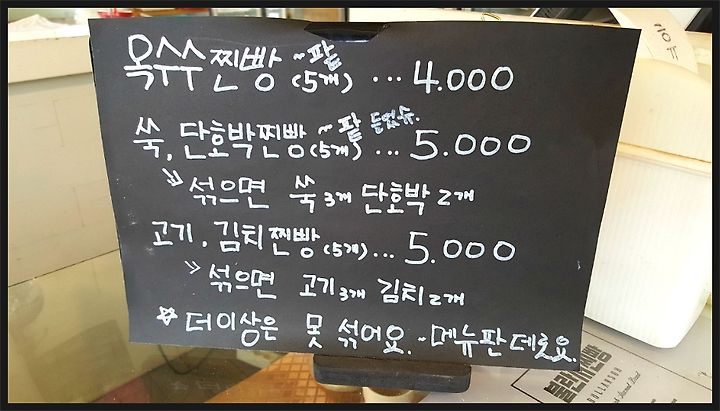 옥수수찐빵 ~팥 (5개) ... 4.000
쑥, 단호박찐빵 ~팥 들었슈. (5개) ... 5.000
섞으면 쑥 3개 단호박 2개
고기, 김치찐빵 (5개) ... 5.000
섞으면 고기 3개 김치 2개
☆ 더이상은 못 섞어요. ~메뉴판 데로요.